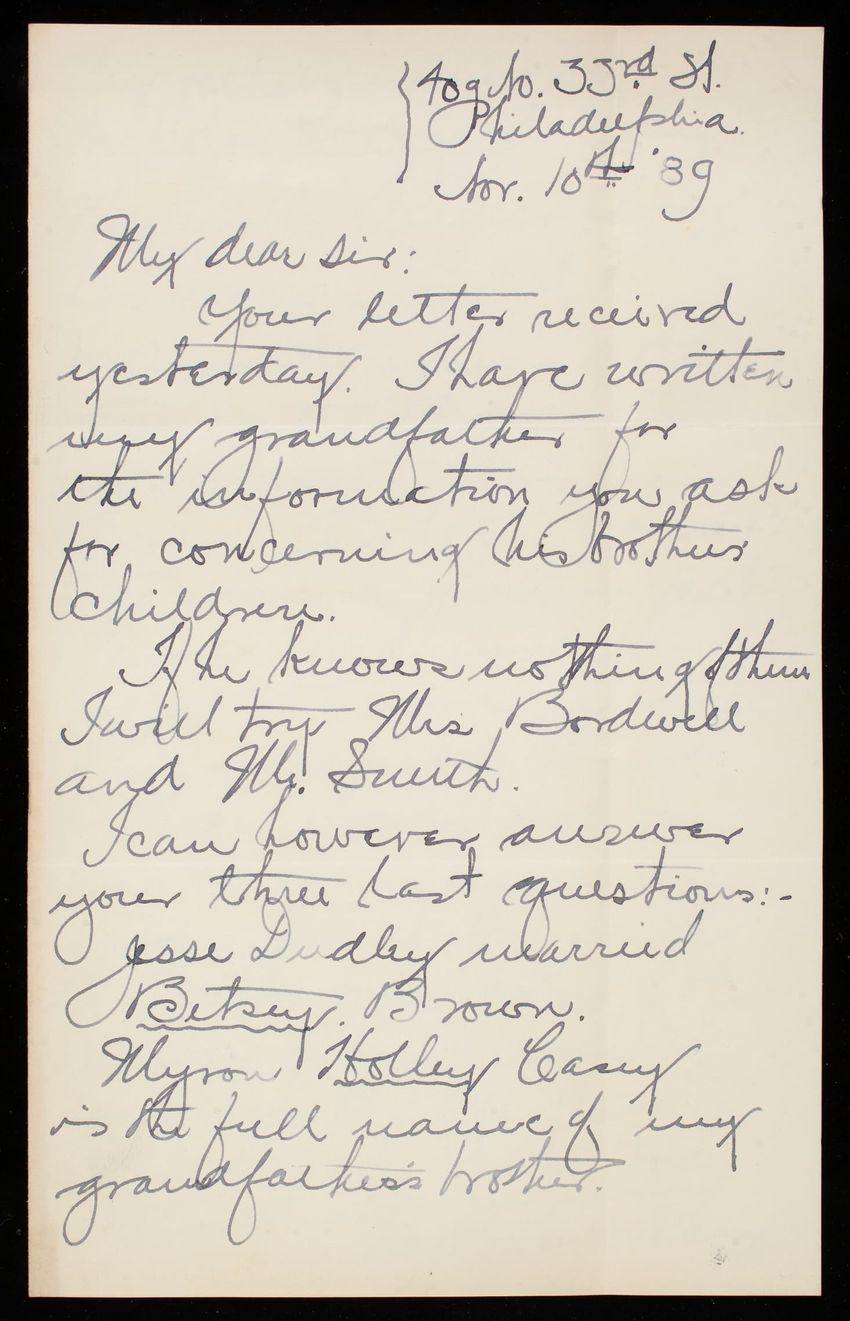 409 No. 33rd St.
Philadelphia.
Nov. 10th '89
My dear sir:
Your letter received
yesterday. I have written
my grandfather for
the information you ask
for concerning his brothers
children.
If he knows nothing of them
I will try Mrs Bordwell
and Mr. Smith.
I can however answer
your three last questions:-
Jesse Dudley married
Betsey. Brown.
Myron Holley Casey
is the full name of my
grandfather's brother.